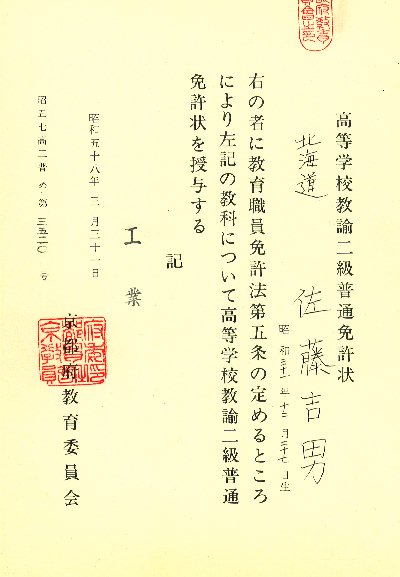 高等学校教諭二級普通免許状
北海道
佐藤吉男
昭和三十一年十二月二十七日生
右の者に教育職員免許法第五条の定めるところ
により左記の教科について高等学校教諭二級普通
免許状を授与する
記
工業
昭和五十八年三月三十一日
京都府教育委員会
昭五七高二普め第三五二〇号